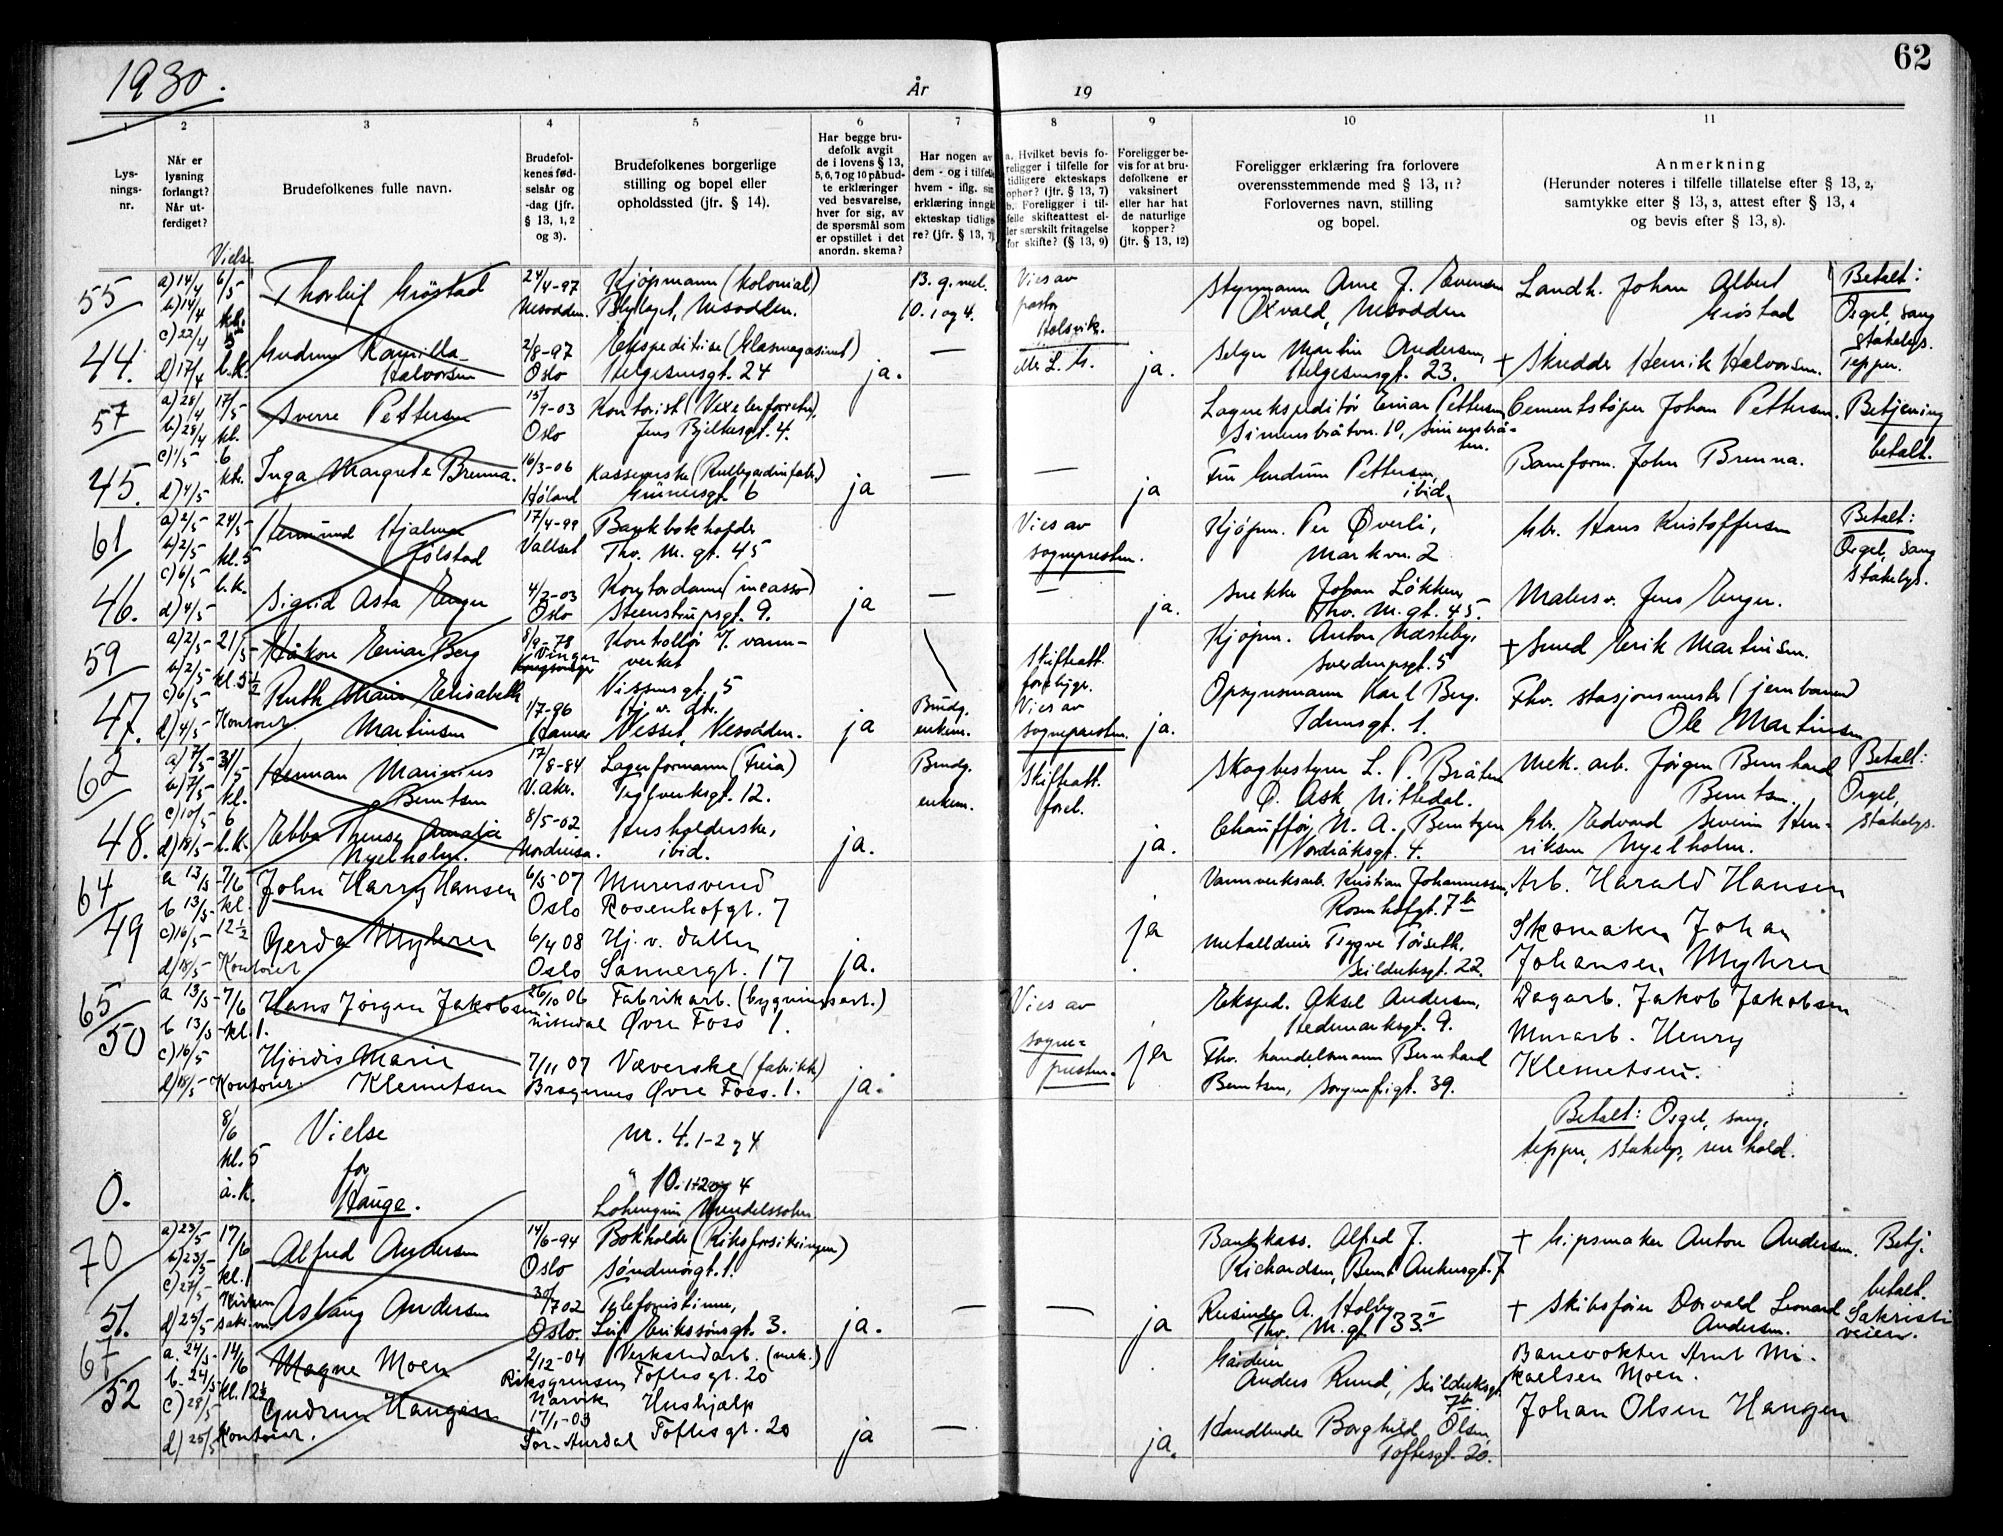 1930.
År
19
62
1
2
3
4
5
6
7
8
9
10
11
Lys-
nings-
nr.
Når er
lysning
forlangt?
Når ut-
ferdiget?
Vielse
Brudefolkenes fulle navn.
Brudefol-
kenes fød-
selsår og
-dag (jfr.
§ 13, 1, 2
og 3).
Brudefolkenes borgerlige
stilling og bopel eller
opholdssted (jfr. § 14).
Har begge bru-
defolk avgit
de i lovens § 13,
5, 6, 7 og 10 påbud-
te erklæringer
ved besvarelse,
hver for sig, av
de spørsmål som
er opstillet i det
anordn. skema?
Har nogen av
dem - og i tilfelle
hvem - iflg. sin
erklæring inngått
ekteskap tidlige-
re? (jfr. § 13, 7)
a. Hvilket bevis fo-
religger i tilfelle for
tidligere ekteskaps
ophør? (jfr. § 13, 7)
b. Foreligger i til-
felle skifteattest el-
ler særskilt fritagelse
for skifte? (§ 13, 9)
Foreligger be-
vis for at bru-
defolkene er
vaksinert
eller har hat
de naturlige
kopper?
(jfr. § 13, 12)
Foreligger erklæring fra forlovere
overensstemmende med § 13, 11?
Forlovernes navn, stilling
og bopel.
Anmerkning
(Herunder noteres i tilfelle tillatelse efter § 13, 2,
samtykke efter § 13, 3, attest efter § 13, 4
og bevis efter § 13, 8).
55
a) 14/4 6/5
b) 14/4 kl. 5
c) 22/4
Thorleif Grøstad
24/4-97
Nesodden.
Kjøpmann (Kolonial)
Nesodden.
13. g. mel.
10. 1 og 4.
Vies av
pastor
Holsvik.
Styrmann Arne J. Evensen
Oxvald, Nesodden
Landh. Johan Albert
Grøstad
Betalt:
Orgel, sang
stakelys.
Tepper.
44.
d) 17/4 b.k.
Gudrun Kamilla
Halvorsen
2/8-97
Oslo
Ekspeditrise (Glasmagasinet)
Helgesensgt. 24
ja.
—
eller L. H.
ja.
Selger Martin Andersen,
Helgesensgt. 23.
+ Skredder Henrik Halvorsen.
57
a) 28/4 17/5
b) 28/4 kl.
c) 1/5 6
Sverre Pettersen
15/9-03
Oslo
Kontorist (Vexelerforretn.)
Jens Bjelkesgt. 4.
Lagerekspeditør Einar Pettersen
Simensbråtvn. 10, Simensbrå-
ten.
Cementstøper Johan Pettersen.
Betjening
betalt.
45.
d) 4/5
Inga Margrete Brenna.
16/3-06
Høland
Kasserske (Rullegardinfabr.)
Grünersgt. 6
ja
—
—
ja
Fru Gudrun Pettersen,
ibid.
Baneform. John Brenna.
61
a) 2/5 24/5
b) 2/5 kl. 5
c) 6/5 b.k.
Hjalmar
Jølstad
17/4-99
Vallset
Bankbokholder
Thv. M. gt. 45
Vies av
sognepresten.
Kjøpm. Per Øverli,
Markvn. 2
Gbr. Hans Kristoffersen
Betalt:
Orgel, sang
stakelys.
46.
d) 4/5
Sigrid Asta Enger
4/2-03
Oslo
Kontordame (incasso)
Steenstrupsgt. 9.
ja
—
—
ja.
Snekker Johan Løkken,
Thv. M. gt. 45.
Malersv. Jens Enger.
59
a) 2/5 21/5
b) 2/5 kl. 5 1/2
c) 6/5
Håkon Einar Berg
8/9-78
Kontrollør v. vann-
verket
Vissensgt. 5
Skifteatt.
forelegger.
Kjøpm. Anton Næsteby,
Sverdrupsgt. 5
+ Smed Erik Martinsen.
47.
d) 4/5 Kontoret
Ruth Marie Elisabeth
Martinsen
1/7-96
Hamar
Hj. v. dtr.
Nesset, Nesodden.
ja
Brudg.
enkem.
Vies av
sognepresten.
ja.
Opsynsmann Karl Berg.
Idunsgt. 1.
Fhv. stasjonsmester (jernbanen)
Ole Martinsen
62
a) 7/5 31/5
b) 7/5 kl.
c) 10/5 6
Herman Marinius
Berntsen
17/8-84
V. Aker.
Lagerformann (Freia)
Teglverksgt. 12.
Brudg.
enkem.
Skifteatt.
forel.
Skogbestyrer L. P. Bråten
Ø. Ask, Nittedal.
Mek. arb. Jørgen Bernhard
Berntsen.
Betalt:
Orgel,
stakelys.
48.
d) 18/5 b.k.
Ebba Therese Amalie
Nyelholm.
8/5-02.
Husholderske,
ibid.
ja.
ja.
Chauffør N. A. Berntzen
Nordråksgt. 4.
Gbr. Edvard Severin Hen-
riksen Nyelholm.
64
a 13/5 - 7/6
b 13/5 - kl.
c) 16/5 - 12 1/2
John Harry Hansen
6/5-07
Oslo
Murersvend
Rosenhofgt. 7
Vannverksarb. Kristian Johannessen,
Rosenhofgt. 7b
Arb. Harald Hansen
49
d) 18/5 Kontoret
Gerda Myhrer
6/4 08
Oslo
Hj. v. datter
Sannergt. 17
ja.
ja
Metalldreier Trygve Tørseth.
Seilduksgt. 22.
Skomaker Johan
Johansen Myhrer
65
a 13/5 - 7/6
b 13/5 - kl 1.
c) 16/5
Hans Jørgen Jakobsen
26/10 06
Nittedal
Fabrikarb. (bygningsart.)
Øvre Foss 1.
Vies av
sogne-
presten.
Eksped. Aksel Andersen,
Hedemarksgt. 9.
Dagarb. Jakob Jakobsen
50
d) 18/5 Kontoret.
Hjørdis Marie
Klemetsen
7/11 07
Bragernes
Væverske (fabrikk)
Øvre Foss. 1.
ja.
ja
Fhv. handelsmann Bernhard
Berntsen, Sorgenfrigt. 39.
Murarb. Henry
Klemetsen.
0.
8/6
kl. 5
å.k.
Vielse
for
Hauge.
nr. 4. 1-2 og 4
" 10. 1+2 og 4
Lohengrin Mendelssohn
Betalt: Orgel, sang,
tepper, stakelys, renhold.
70
a) 23/5 17/6
b) 23/5 kl. 1
c) 27/5
Alfred Andersen
14/6-94
Oslo
Bokholder (Riksforsikringen)
Søndmørgt. 1.
Bankkass. Alfred J.
Richardsen, Bernt Ankersgt. 7
+ Gipsmaker Anton Andersen.
Betj.
betalt.
Sakristi
veien.
51.
d) 25/5
Aslaug Andersen
30/7 02
Oslo.
Telefonistinne,
Leif Erikssønsgt. 3.
ja.
—
—
ja
Reisende A. Holby
Thv. M. gt 33 II
+ Skibsfører Dorvald Leonard
Andersen.
67
a. 24/5 - 14/6
b. 24/5 kl. 12 1/2
c) 28/5
Magne Moen
2/12-04
Riksgrensen
Narvik
Verkstedarb. (mek.)
Toftesgt. 20
Gårdeier
Anders Rund, Seilduksgt.
7b.
Banevokter Arnt Mi-
kaelsen Moen.
52
d) 25/5 Kontoret.
Gudrun Haugen
17/1-03
Sør-Aurdal
Hushjelp
Toftesgt. 20
ja
—
ja.
Handlende Borghild Olsen,
Toftesgt. 20.
Johan Olsen Haugen